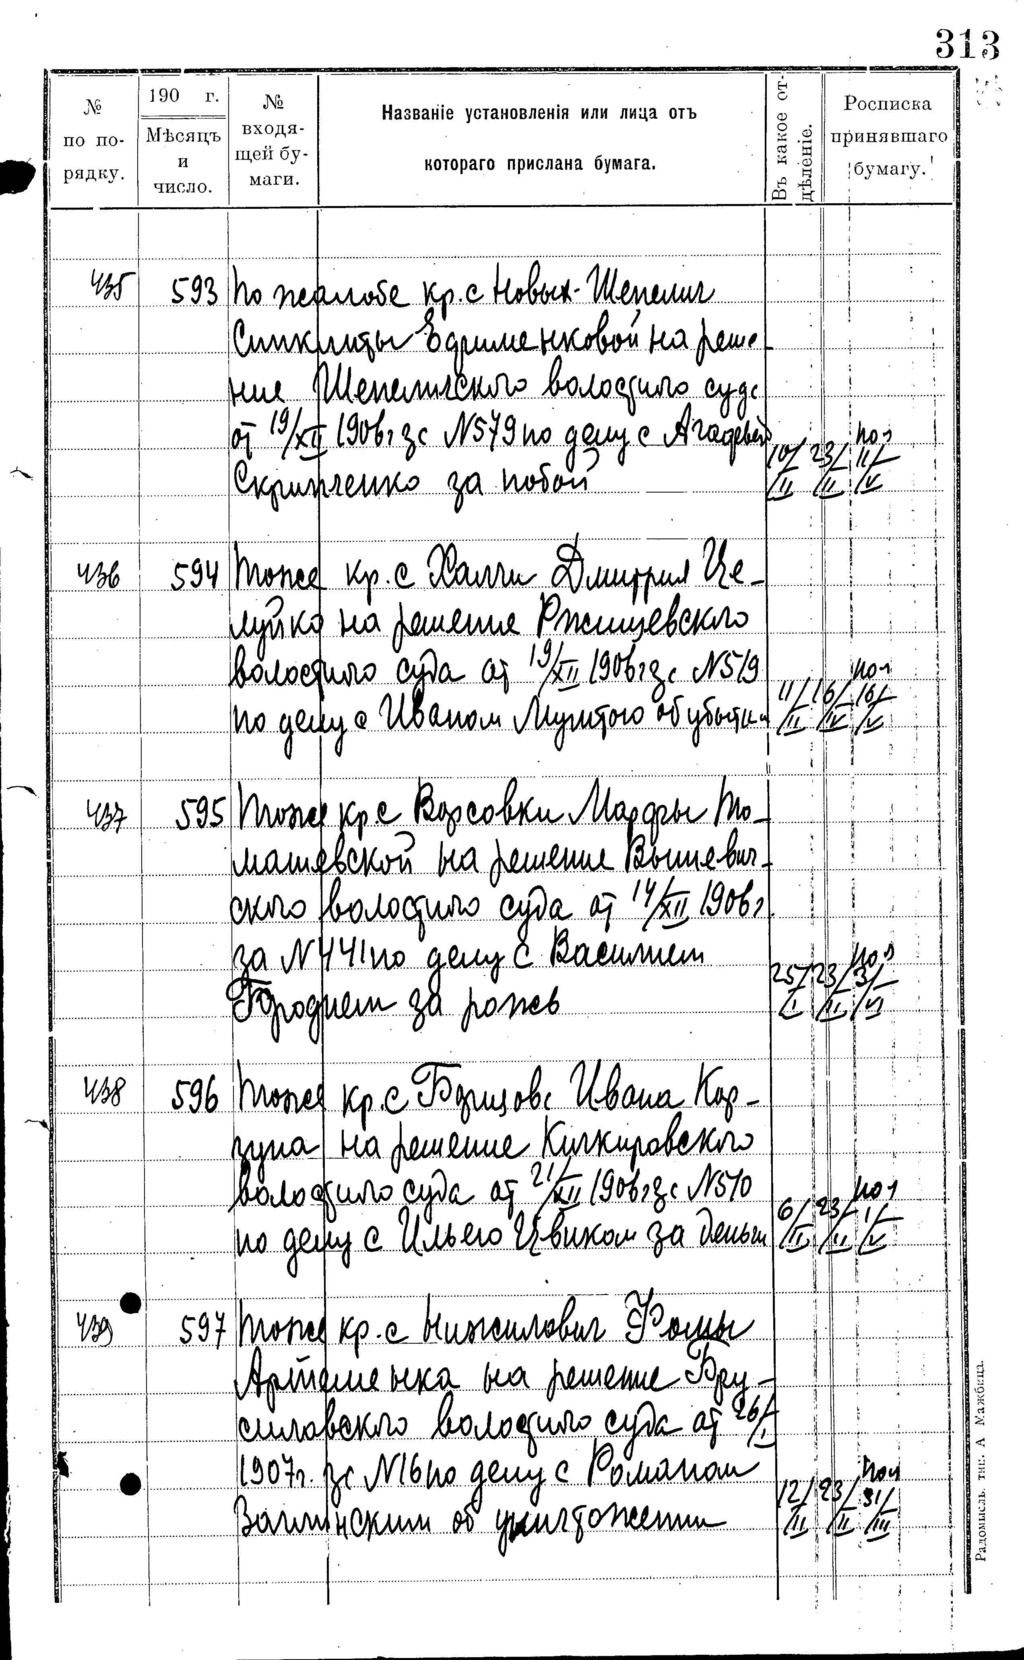 313
№ по по-рядку.
190 г.
Мѣсяцъ и число.
№ входя-щей бу-маги.
Названіе установленія или лица отъ
котораго прислана бумага.
Въ какое от-дѣленіе.
Росписка принявшаго бумагу.
435 593 По жалобе кр. с Новых-Шепелич
Синклиты Ефрименковой на реше
ние Шепеличского волостного суда
от 19/XII 1906 г за N579 по делу с Агафьей
Скрипченко за побои 10/II 23/II 11/V
436 594 Тоже кр. с Халчи Дмитрия Це-
луйко на решение Ржищевского
волостного суда от 19/XII 1906 г за N519
по делу с Иваном об убытка 11/II 16/IV 16/V
437 595 Тоже кр с Ворсовки Марфы То-
машевской на решение Вышевич-
ского волостного суда от 14/XII 1906 г
за N441 по делу с Василием
Городнем за рожь 25/I 23/II 3/VI
438 596 Тоже кр. с Борщова Ивана Кор-
зуна на решение
волостного суда от 21/XII 1906 г за N510
по делу с Ильею Цвиком за деньги 6/II 23/II 1/V
439 597 Тоже кр. с Нижилович Фомы
Артеменка на решение Бру-
силовского волостного суда от 26/I
1907 г. за N16 по делу с Романом
об уничтожении 12/II 23/II 31/III
Радомысль. тип. А Мажбица.